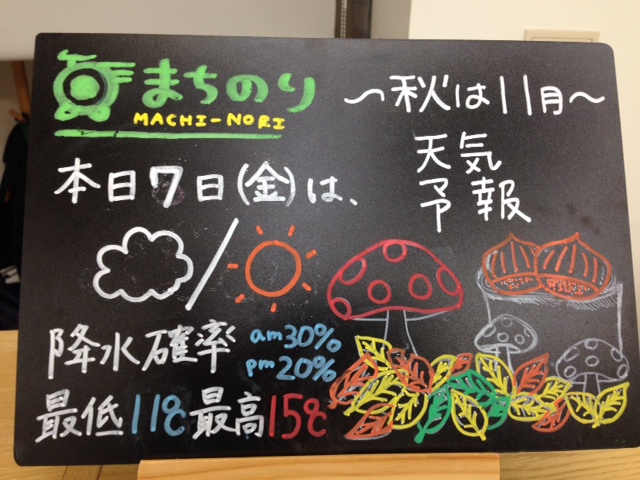 まちのり
MACHI-NORI
〜秋は11月〜
天気
予報
本日7日(金)は、
降水確率 am30%
pm20%
最低11℃最高15℃